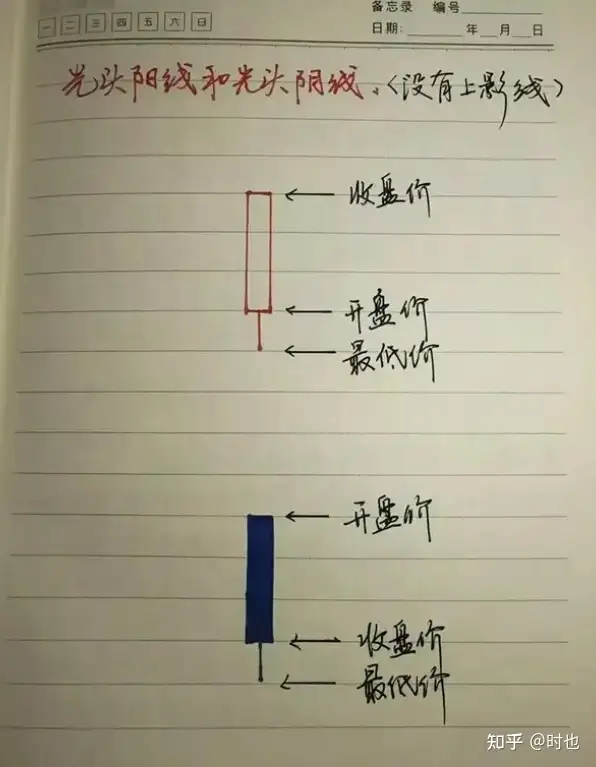 一 二 三 四 五 六 日
备忘录 编号
日期: 年 月 日
光头阳线和光头阴线.(没有上影线)
收盘价
开盘价
最低价
开盘价
收盘价
最低价
知乎 @时也